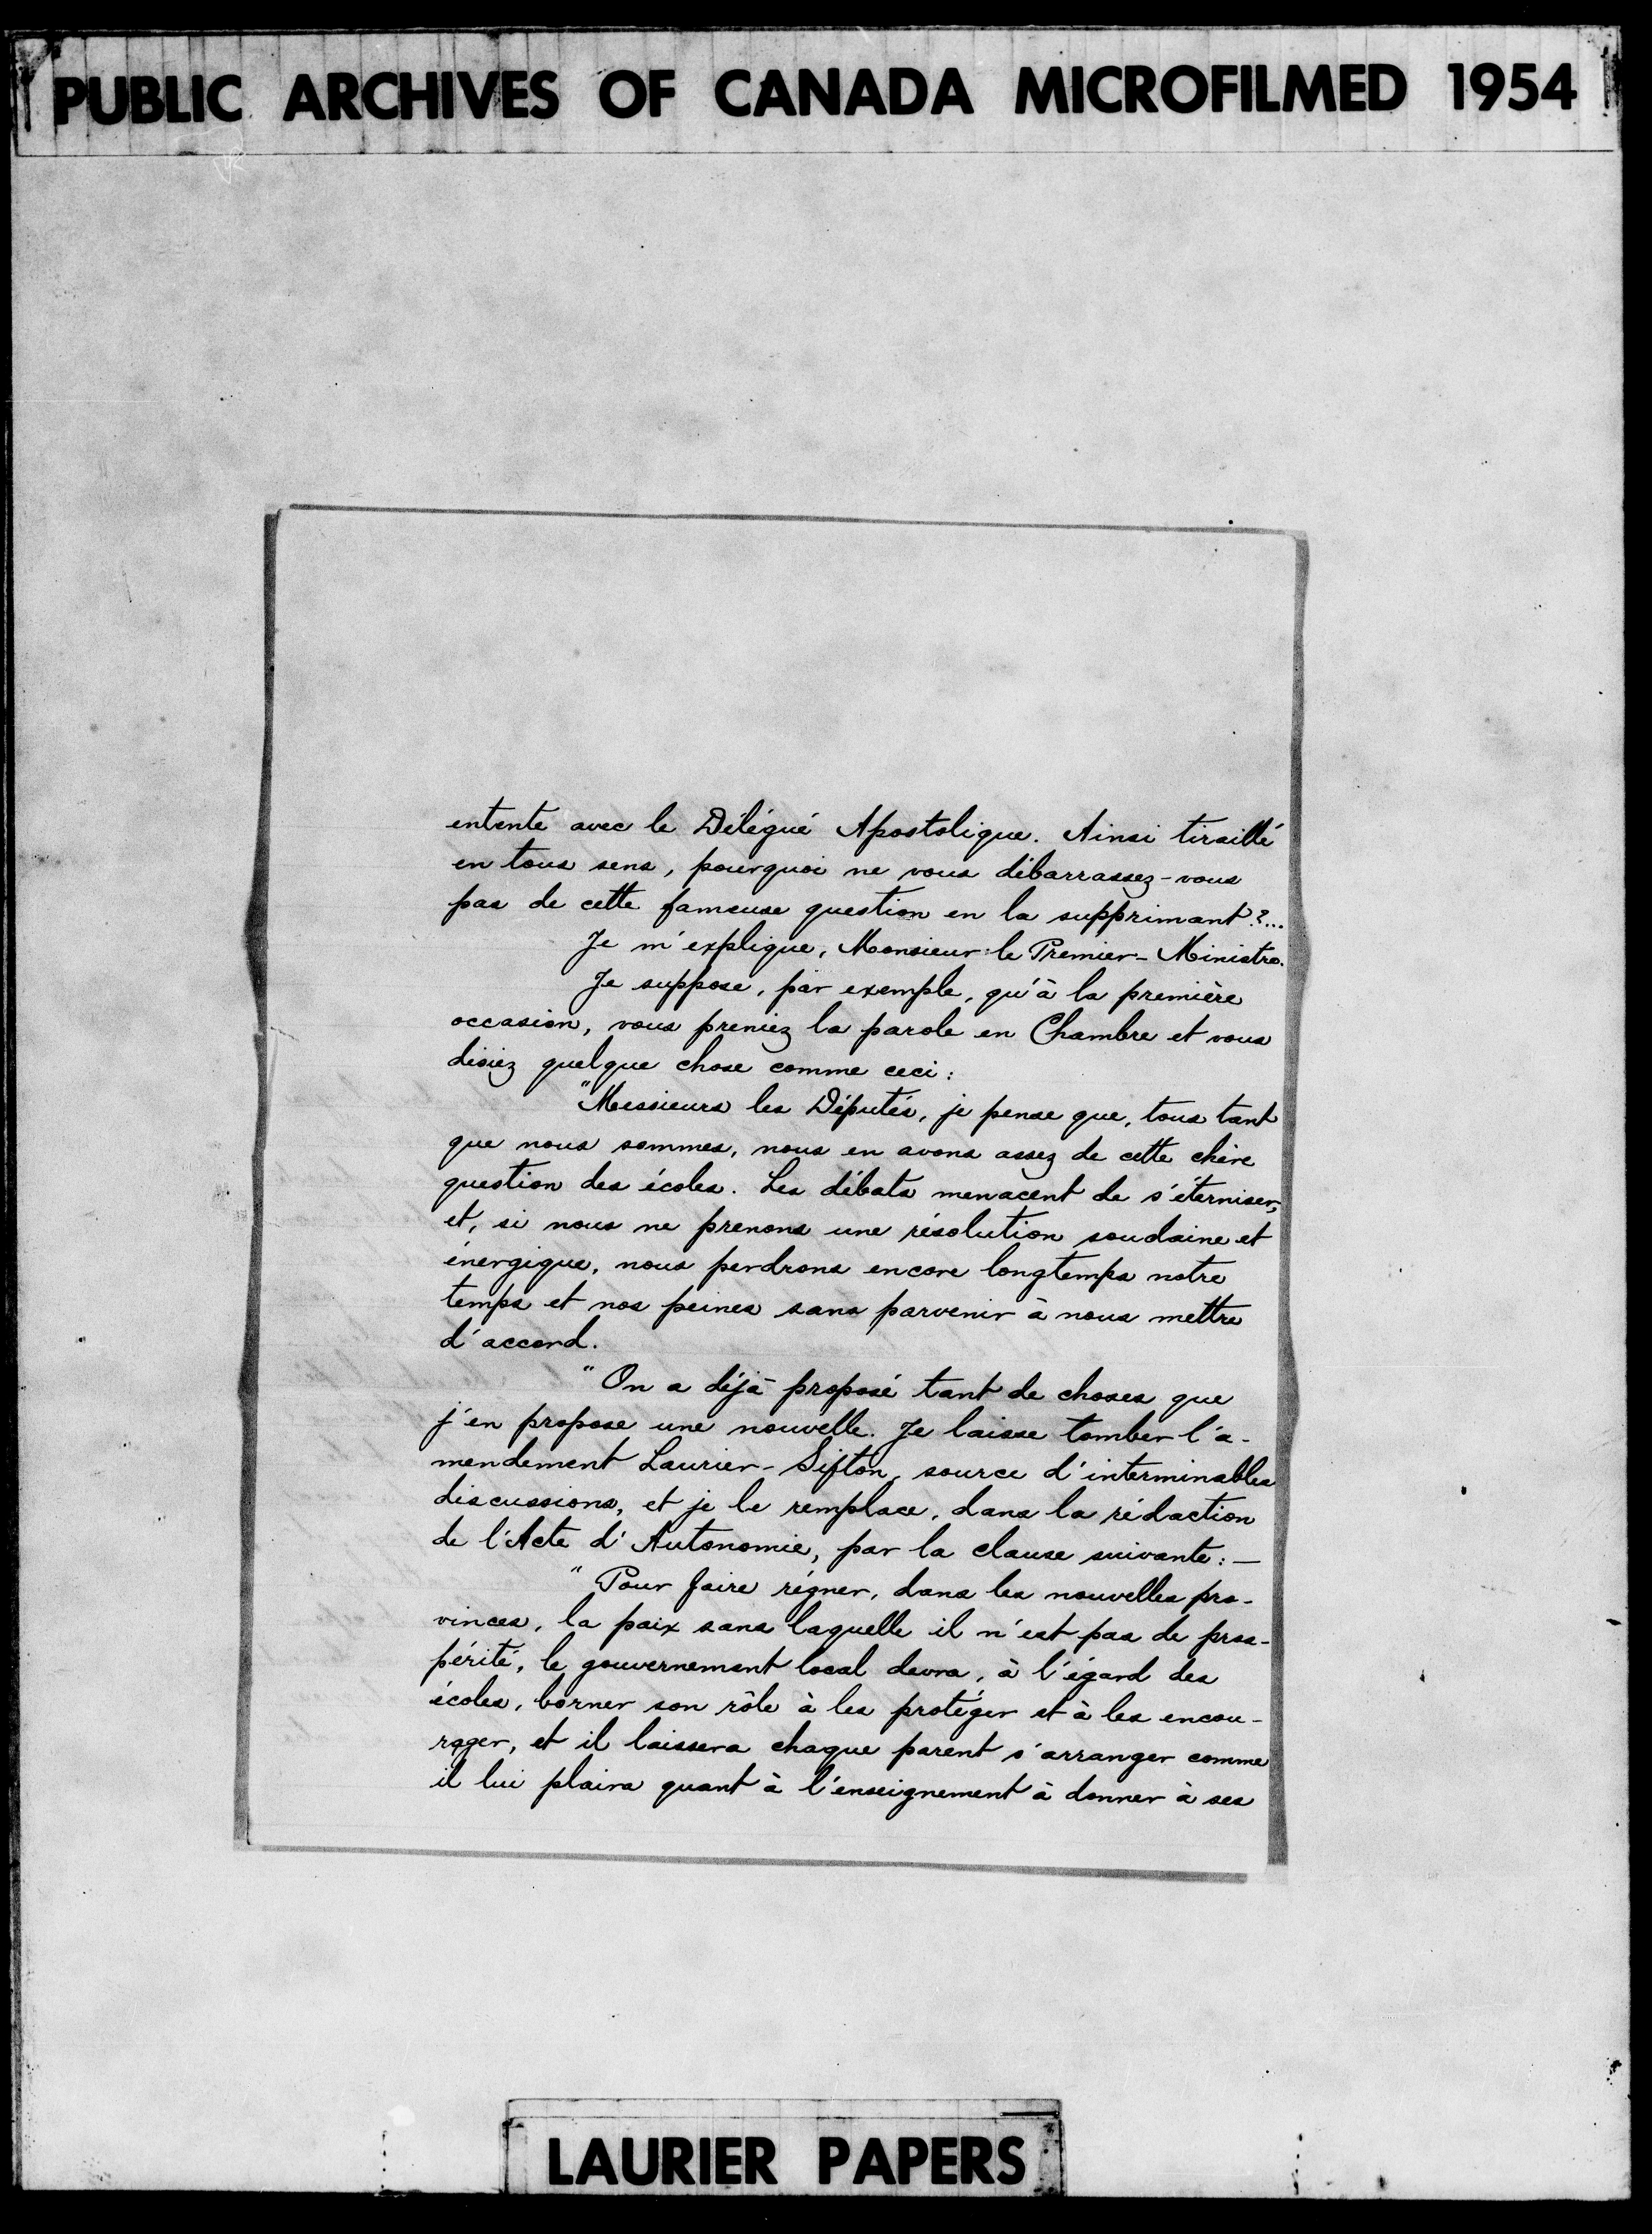 PUBLIC ARCHIVES OF CANADA MICROFILMED 1954
entente avec le Délégué Apostolique. Ainsi tiraillé
en tous sens, pourquoi ne vous débarrassez-vous
pas de cette fameuse question en la supprimant?...
Je m'explique, Monsieur le Premier-Ministre.
Je suppose, par exemple, qu'à la première
occasion, vous preniez la parole en Chambre et vous
disiez quelque chose comme ceci:
"Messieurs les Députés, je pense que, tous tant
que nous sommes, nous en avons assez de cette chère
question des écoles. Les débats menacent de s'éterniser,
et, si nous ne prenons une résolution soudaine et
énergique, nous perdrons encore longtemps notre
temps et nos peines sans parvenir à nous mettre
d'accord.
"On a déjà proposé tant de choses que
j'en propose une nouvelle. Je laisse tomber l'a-
mendement Laurier-Sifton, source d'interminables
discussions, et je le remplace, dans la rédaction
de l'Acte d'Autonomie, par la clause suivante:—
"Pour faire régner, dans les nouvelles pro-
vinces, la paix sans laquelle il n'est pas de pros-
périté, le gouvernement local devra, à l'égard des
écoles, borner son rôle à les protéger et à les encou-
rager, et il laissera chaque parent s'arranger comme
il lui plaira quant à l'enseignement à donner à ses
LAURIER PAPERS